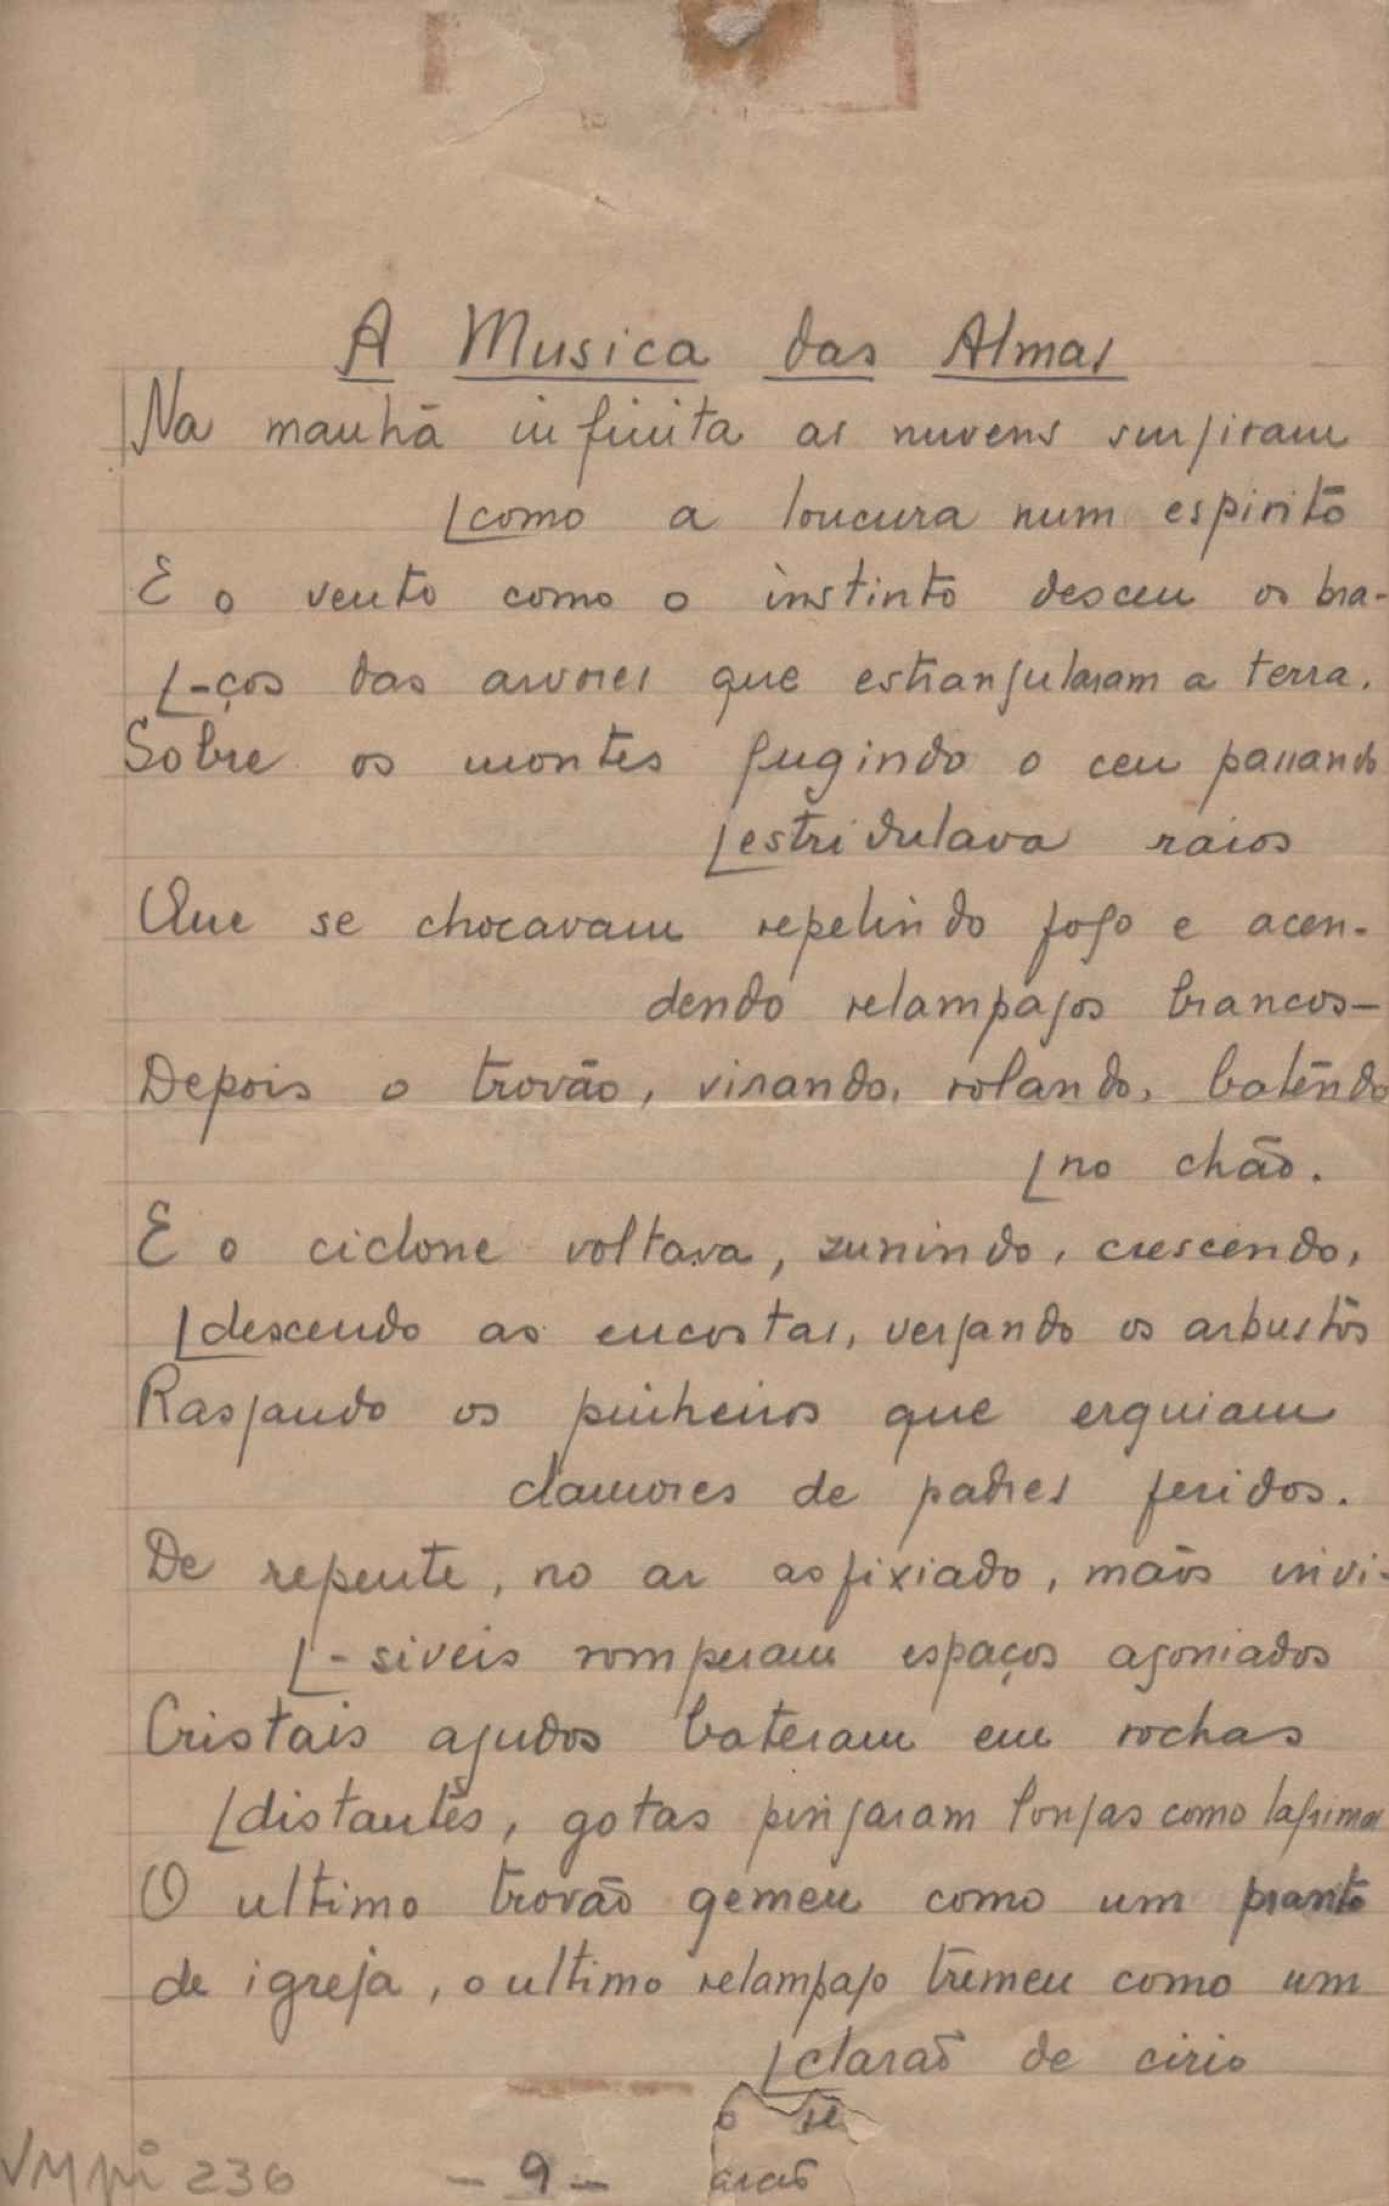 A Musica das Almas
Na manhã infinita as nuvens surgiram
[como a loucura num espirito
E o vento como o instinto desceu os bra-
[-ços das arvores que estrangularam a terra.
Sobre os montes fugindo o ceu passando
[estridulava raios
Que se chocavam repelindo fogo e acen-
dendo relampagos brancos—
Depois o trovão, virando, rolando, batendo
[no chão.
E o ciclone voltava, zunindo, crescendo,
[descendo as encostas, vergando os arbustos
Rasgando os pinheiros que erguiam
clamores de padres feridos.
De repente, no ar asfixiado, mãos invi-
[-siveis romperam espaços agoniados
Cristais agudos bateram em rochas
[distantes, gotas pingaram longas como lagrimas
O ultimo trovão gemeu como um pranto
de igreja, o ultimo relampago tremeu como um
[clarão de cirio
o se
VMpi 236 - 9 -